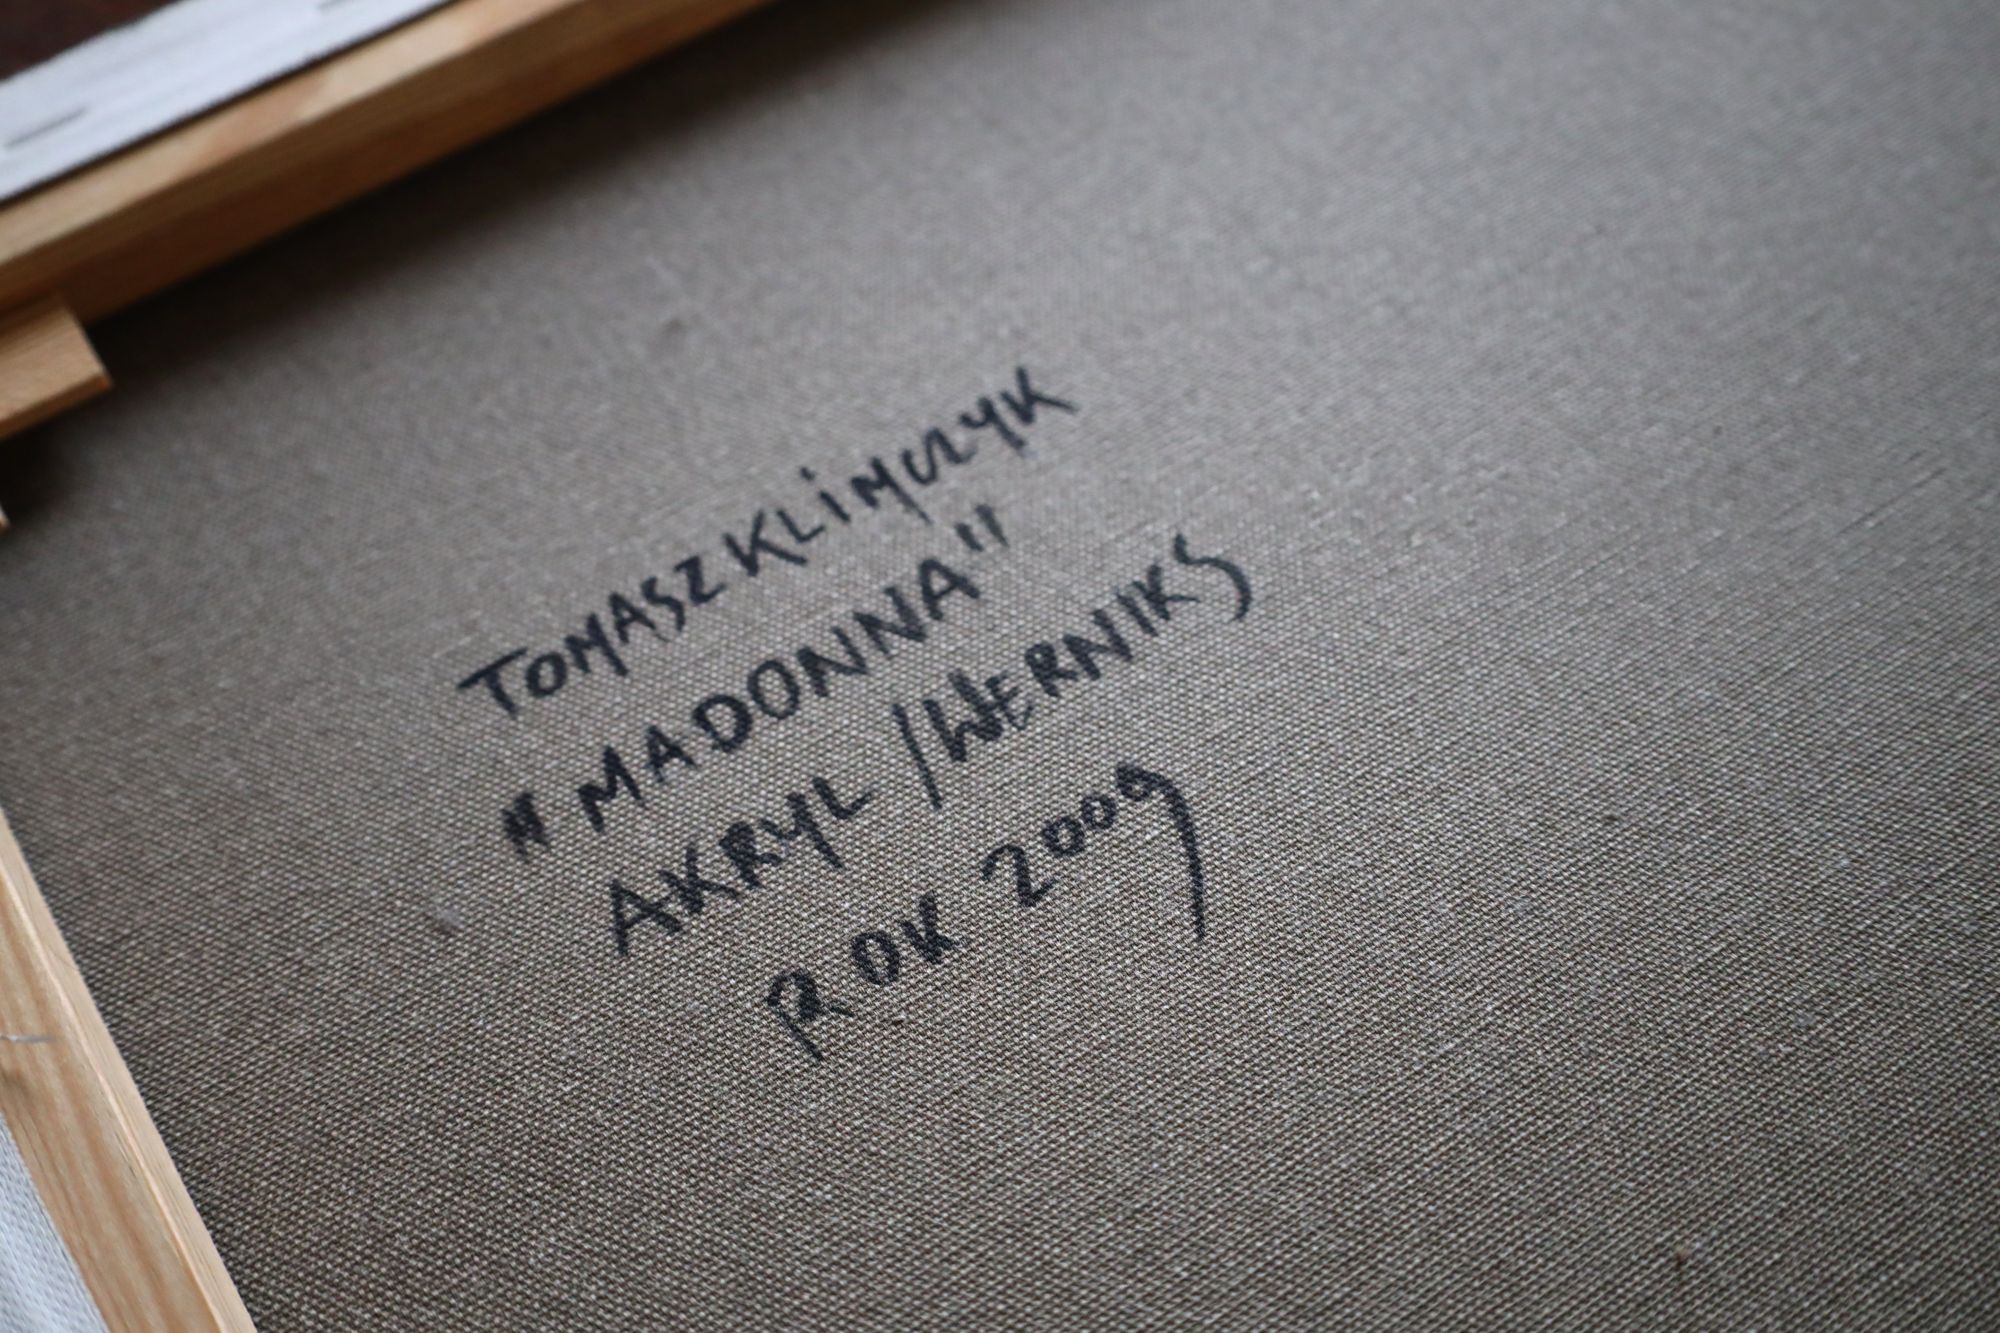 TOMASZ KLiMCZYK
"MADONNA"
AKRYL / WERNIKS
ROK 2009